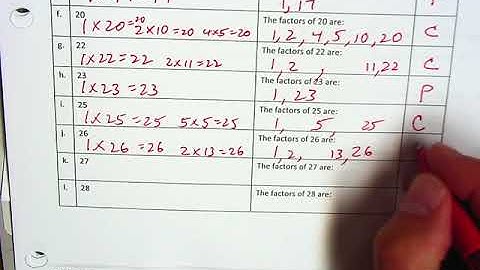 1, 19
f. 20
1 x 20 = 20 2 x 10 = 20 4 x 5 = 20
The factors of 20 are:
1, 2, 4, 5, 10, 20
C
g. 22
1 x 22 = 22 2 x 11 = 22
The factors of 22 are:
1, 2, 11, 22
C
h. 23
1 x 23 = 23
The factors of 23 are:
1, 23
P
i. 25
1 x 25 = 25 5 x 5 = 25
The factors of 25 are:
1, 5, 25
C
j. 26
1 x 26 = 26 2 x 13 = 26
The factors of 26 are:
1, 2, 13, 26
k. 27
The factors of 27 are:
l. 28
The factors of 28 are: